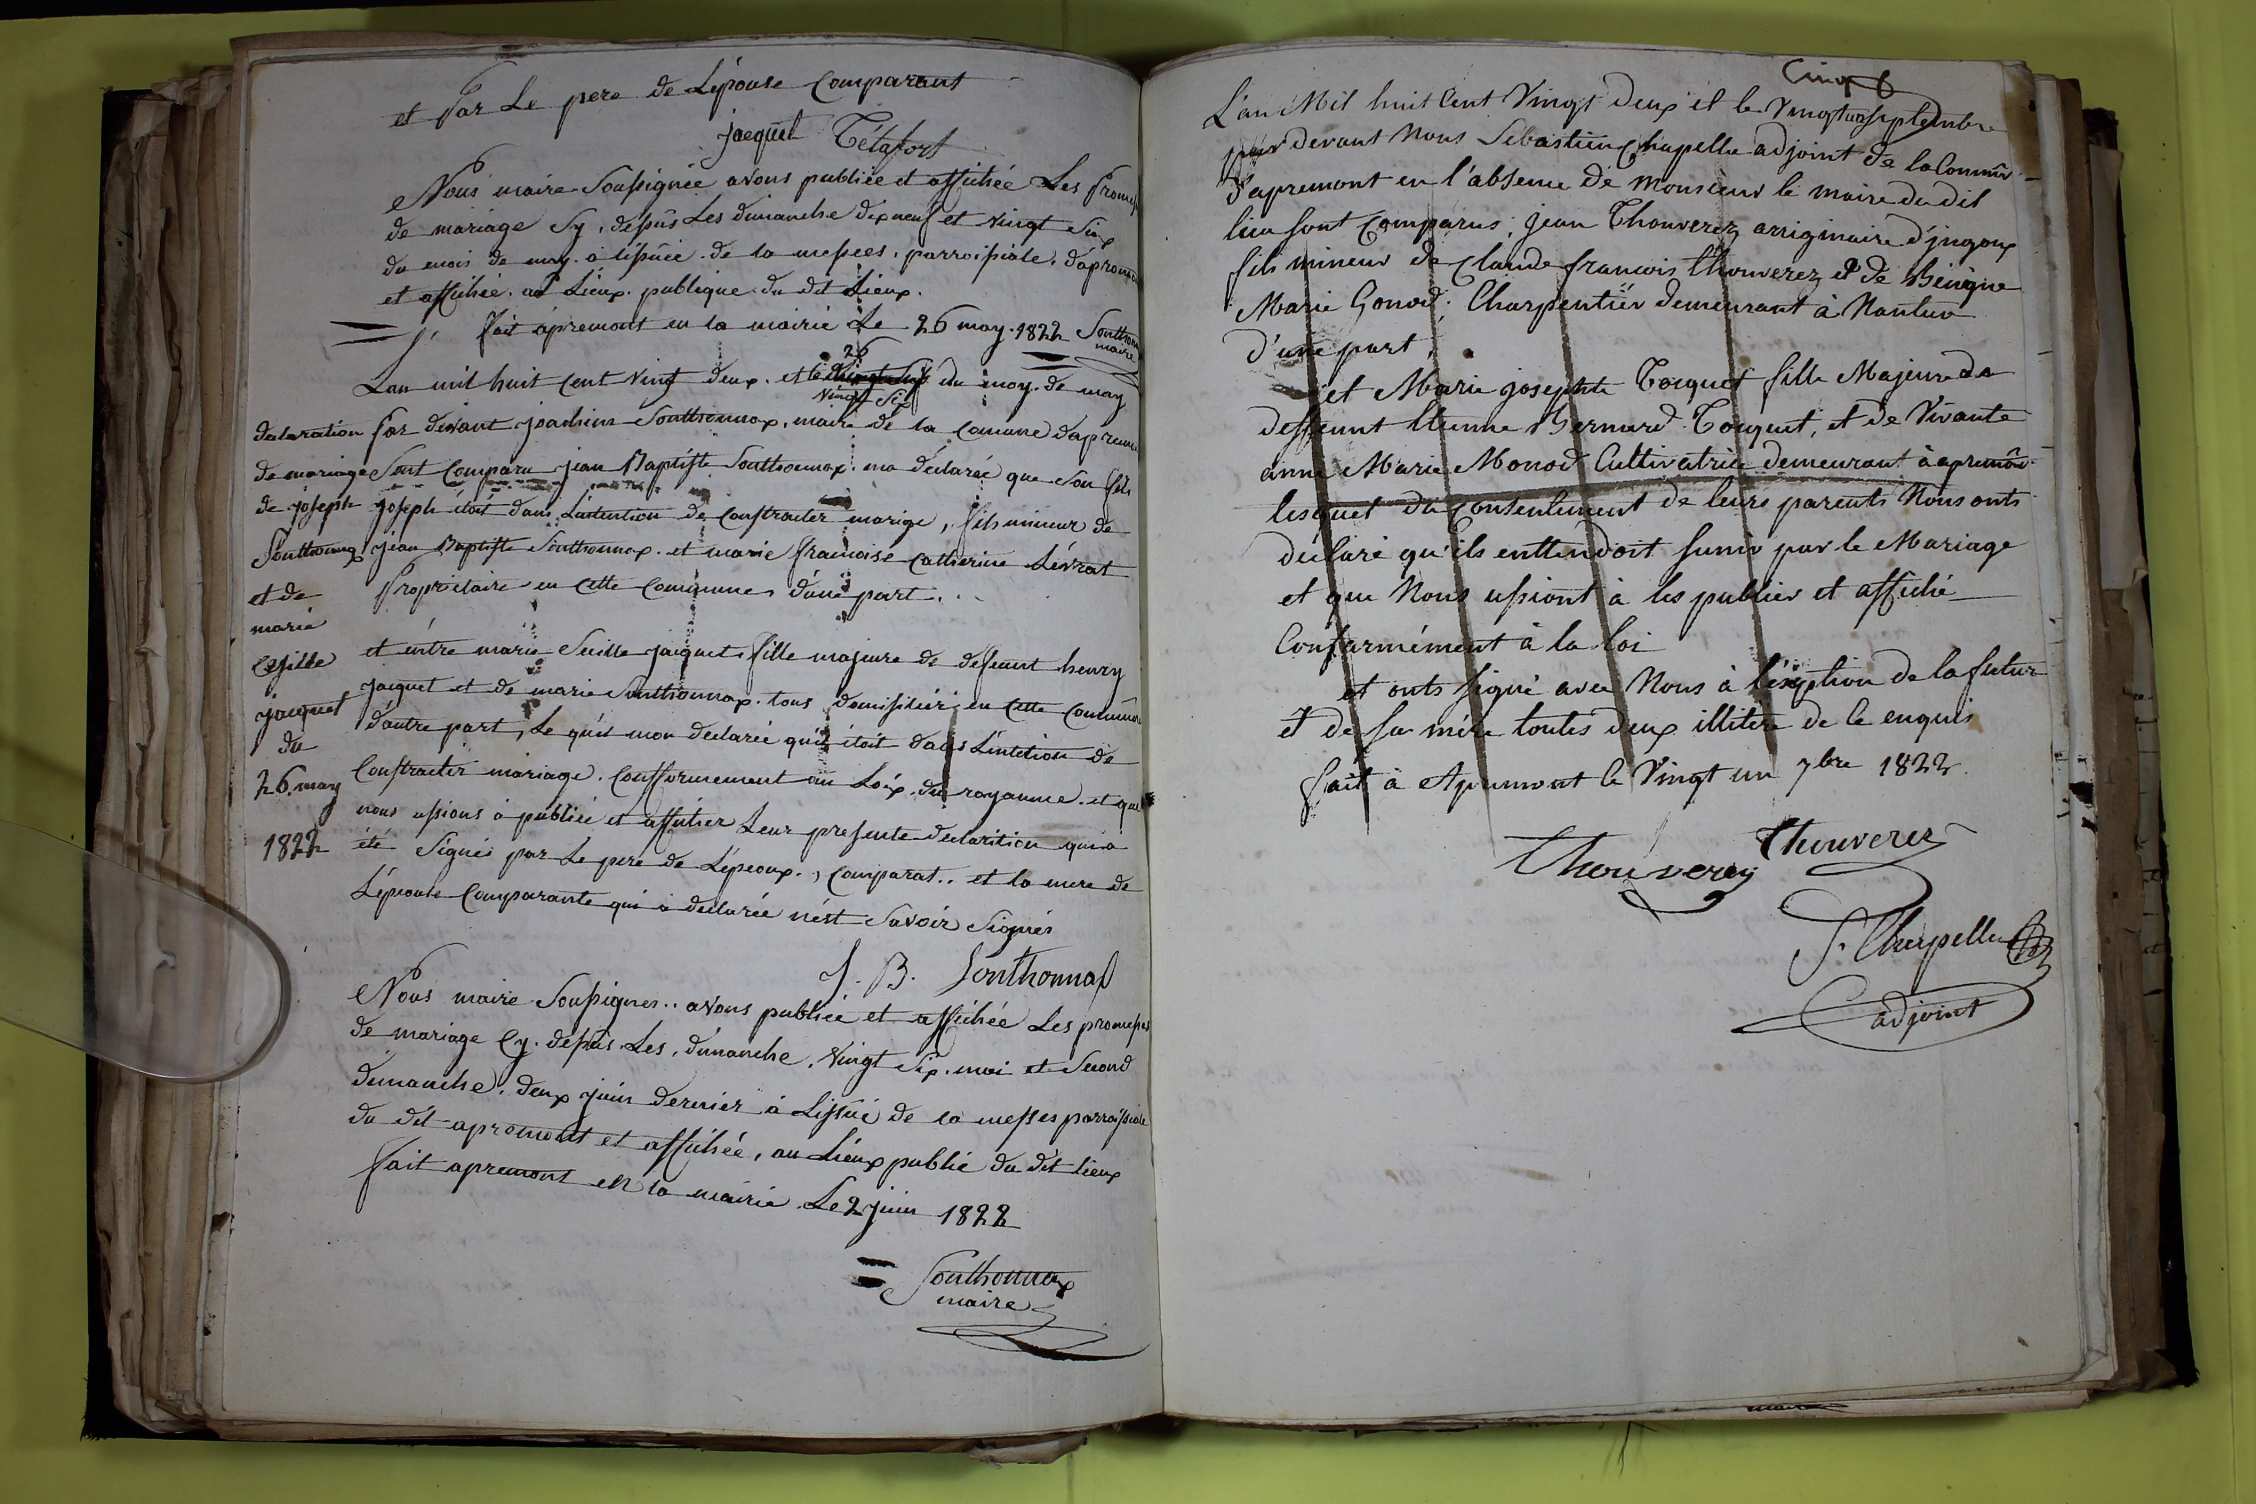 et par Le pere de Lépouse Comparant
jacquet Tétafort
Nous maire Soussignée avons publiée et affichée Les promes
de mariage Sy, dessus Les dimanche dix neuf et vingt Six
du mois de may. a lissuée de la messes, parroissiale, dapromon
et affichée au Lieux publique du dit Lieux.
fait apremont en la mairie Le 26 may 1822 Southonnax
maire
26
Lan mil huit Cent vingt deux et le du moy de may
vingt Six
par devant joachim Southonnax, maire de la Comune dapremon
Sont Comparu jean Baptiste Southonnax. ma déclarée que Son fils
joseph étoit dans Lintention de Contracter mariage, fils mineur de
jean Baptiste Southonnax. et marie francoise Catherine Lévrat
Proprietaire en Cette Commune d'une part.
declaration
de mariage
de joseph
Southonnax
et de
marie
Cesille
jacquet
du
26 may
1822
et entre marie Sesille jacquet fille majeure de defeunt henry
jacquet et de marie Southonnax. tous domisiliés en Cette Commune
d'autre part, Le quel mon declarée quil étoit dans Lintetion de
Contracter mariage. Confformement au Loix du royaume. et que
nous ussions à publié et affiher Leur presente declarition qui a
été Signés par Le pere de Lépeoux, comparat.. et la mere de
Lépeouse Comparante qui a declarée nést Savoir Signés
J. B. Southonnax
Nous maire Soussignes.. avons publiée et affichée Les promesses
de mariage Cy. dessus Les, dimanche, vingt Six. mai et Second
dimanche. deux juin dernier a Lissue de la messes parroissiale
du dit apromont et affichée, au Lieux publié du dit Lieux
fait apremont en la mairie. Le 2 juin 1822
Southonnax
maire
Cinq
L'an Mil huit Cent Vingt deux et le Vingt un Septembre
par devant Nous Sebastien Chapelle adjoint de la Commûn
d'apremont en l'absence de monsieur le maire du dit
lieu sont comparus, jean Thouverez arriginaire d'jzgoux
fils mineur de Claude francois thouverez et de Bénigne
Marie Gonod; Charpentier demeurant à Nantua
d'une part,
et Marie josephte Tocquet fille Majeure de
deffeunt Etienne Bernard Tocquet, et de Vivante
anne Marie Monod Cultivatrice demeurant à apremôn
lesquel du Consentement de leurs parents Nous onts
déclaré qu'ils enttendoit sunir par le Mariage
et que Nous ussiont à les publier et affiché
Conformément à la loi
et onts signé avec Nous à l'éxption de la futur
et de sa mère toutes deux illitere de ce enquis
fait à Apremont le Vingt un 7bre 1822.
Thouverez Thouverez
S. Chapelle
adjoint